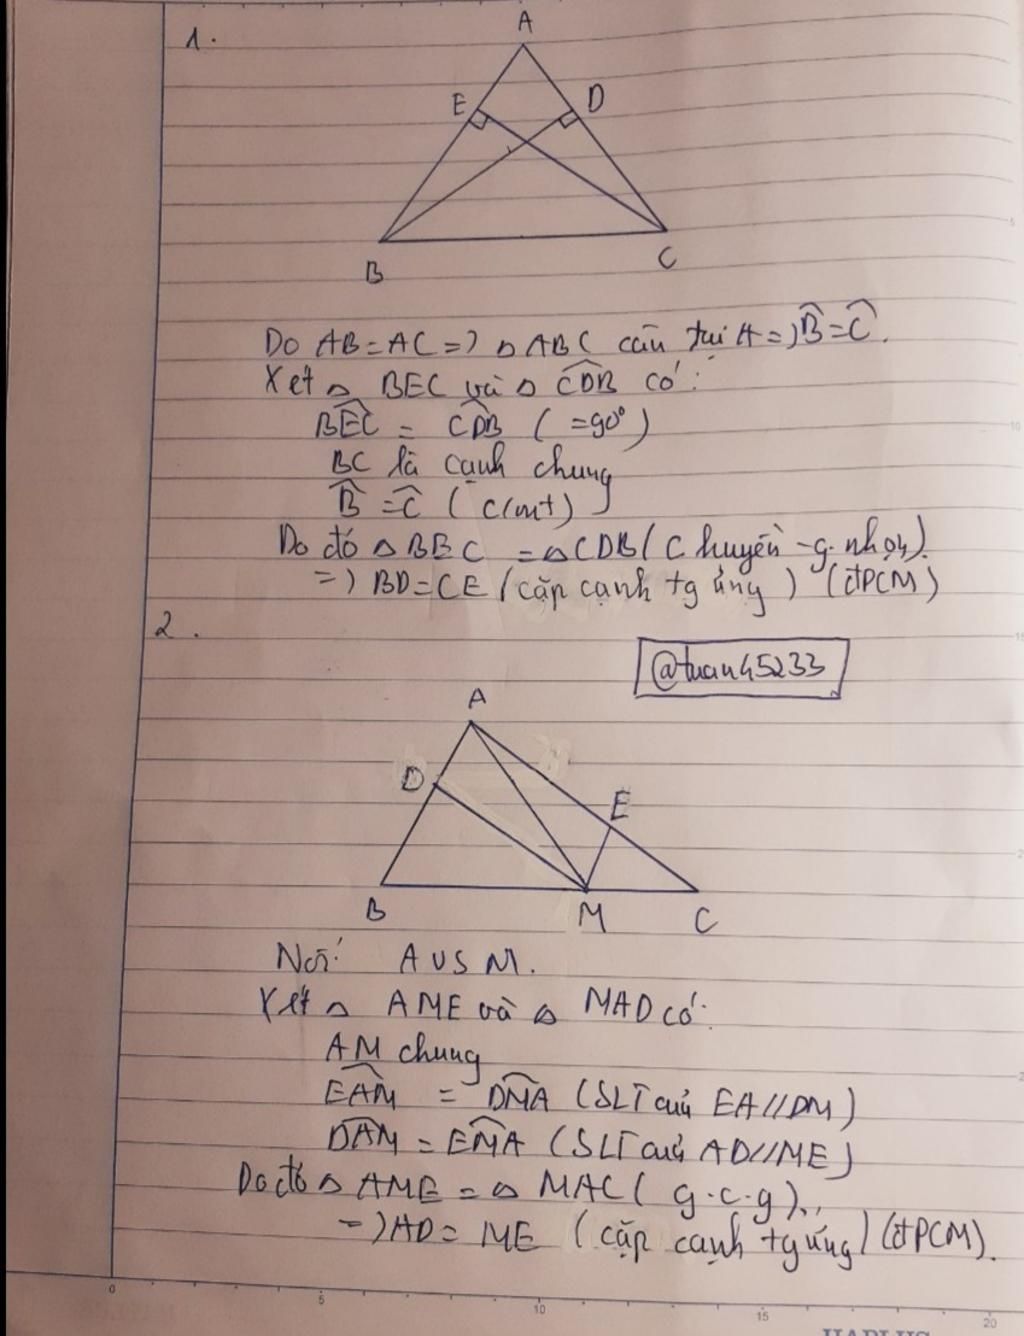 1.
A
E
D
B
C
Do AB=AC=) △ABC cân tại A=) B̂=Ĉ.
Xét △ BEC và △ CDB có:
BEC = CDB (=90°)
BC là cạnh chung
B̂ =Ĉ (c/mt)
Do đó △BEC =△CDB (c huyền -g. nhọn).
=) BD=CE (cặp cạnh tg ứng) (đPCM)
2.
@tuan45233
A
D
E
B
M
C
Nối A vs M.
Xét △ AME và △ MAD có:
AM chung
EAM = DMA (SLT của EA//DM)
DAM = EMA (SLT của AD//ME)
Do đó △ AME = △ MAC (g.c.g).,
=) AD = ME (cặp cạnh tg ứng) (đPCM).
0 5 10 15 20